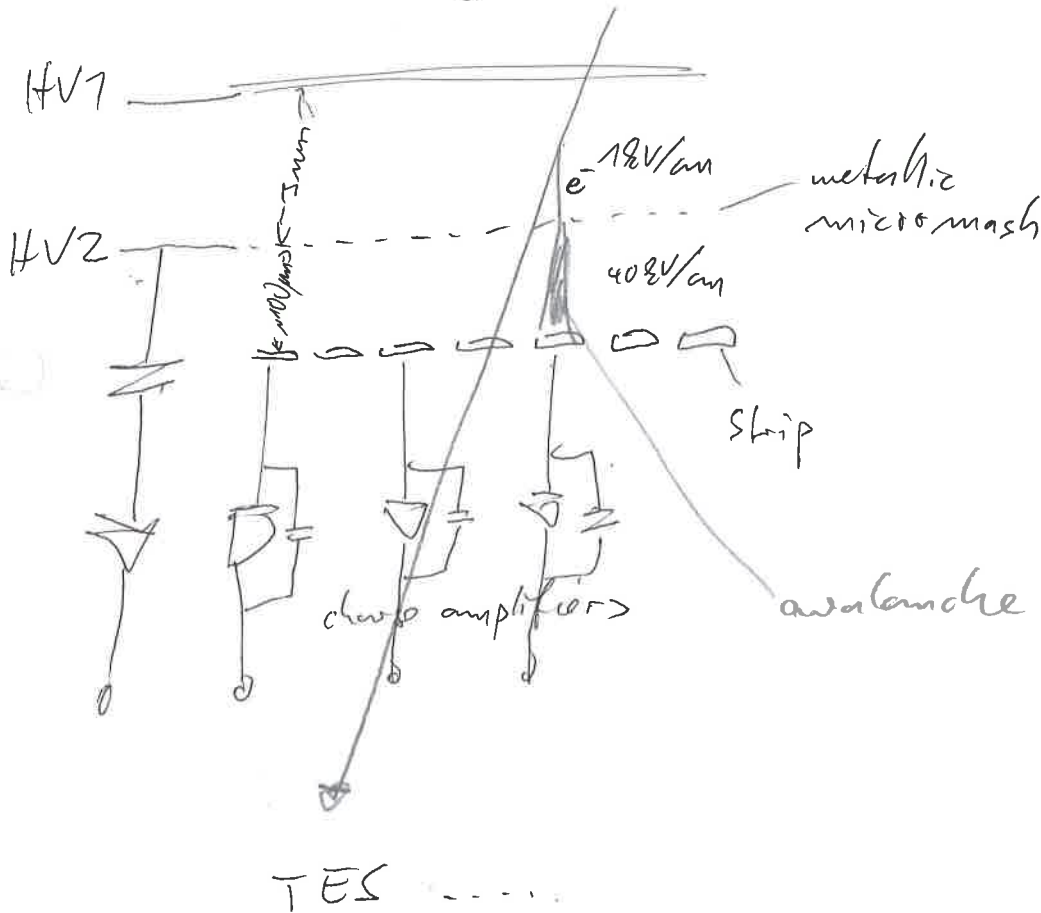 HV1
e⁻ 1kV/cm
metallic
micromash
HV2
40kV/cm
strip
amplifiers
avalanche
TES .....